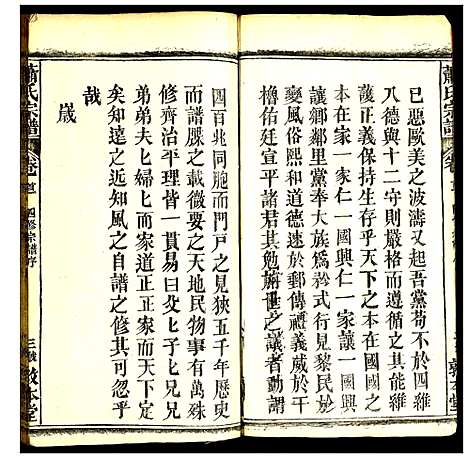 蕭氏宗譜
已惡歐美之波濤又起吾黨苟不於四維
八德與十二守則嚴格而遵循之其能維
護正義保持生存乎天下之本在國國之
本在家一家仁一國興仁一家讓一國興
讓鄉鄰里黨奉大族為矜式行見黎民於
變風俗熙和道德速於郵傳禮義威於干
櫓佑廷宣平諸君其勉旃世之議者動謂
四百兆同胞而門戶之見狹五千年歷史
而譜牒之載微要之天地民物事有萬殊
修齊治平理皆一貫易曰父父子子兄兄
弟弟夫夫婦婦而家道正正家而天下定
矣知遠之近知風之自譜之修其可忽乎
哉
歲
蕭氏宗譜
卷首
四修宗譜序
三
敦本堂